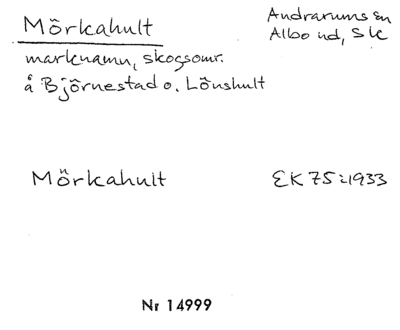 Mörkahult
Andrarums sn
Albo hd, Sk
marknamn, skogsomr.
å Björnestad o. Lönshult
Mörkahult
EK 75:1933
Nr 14999